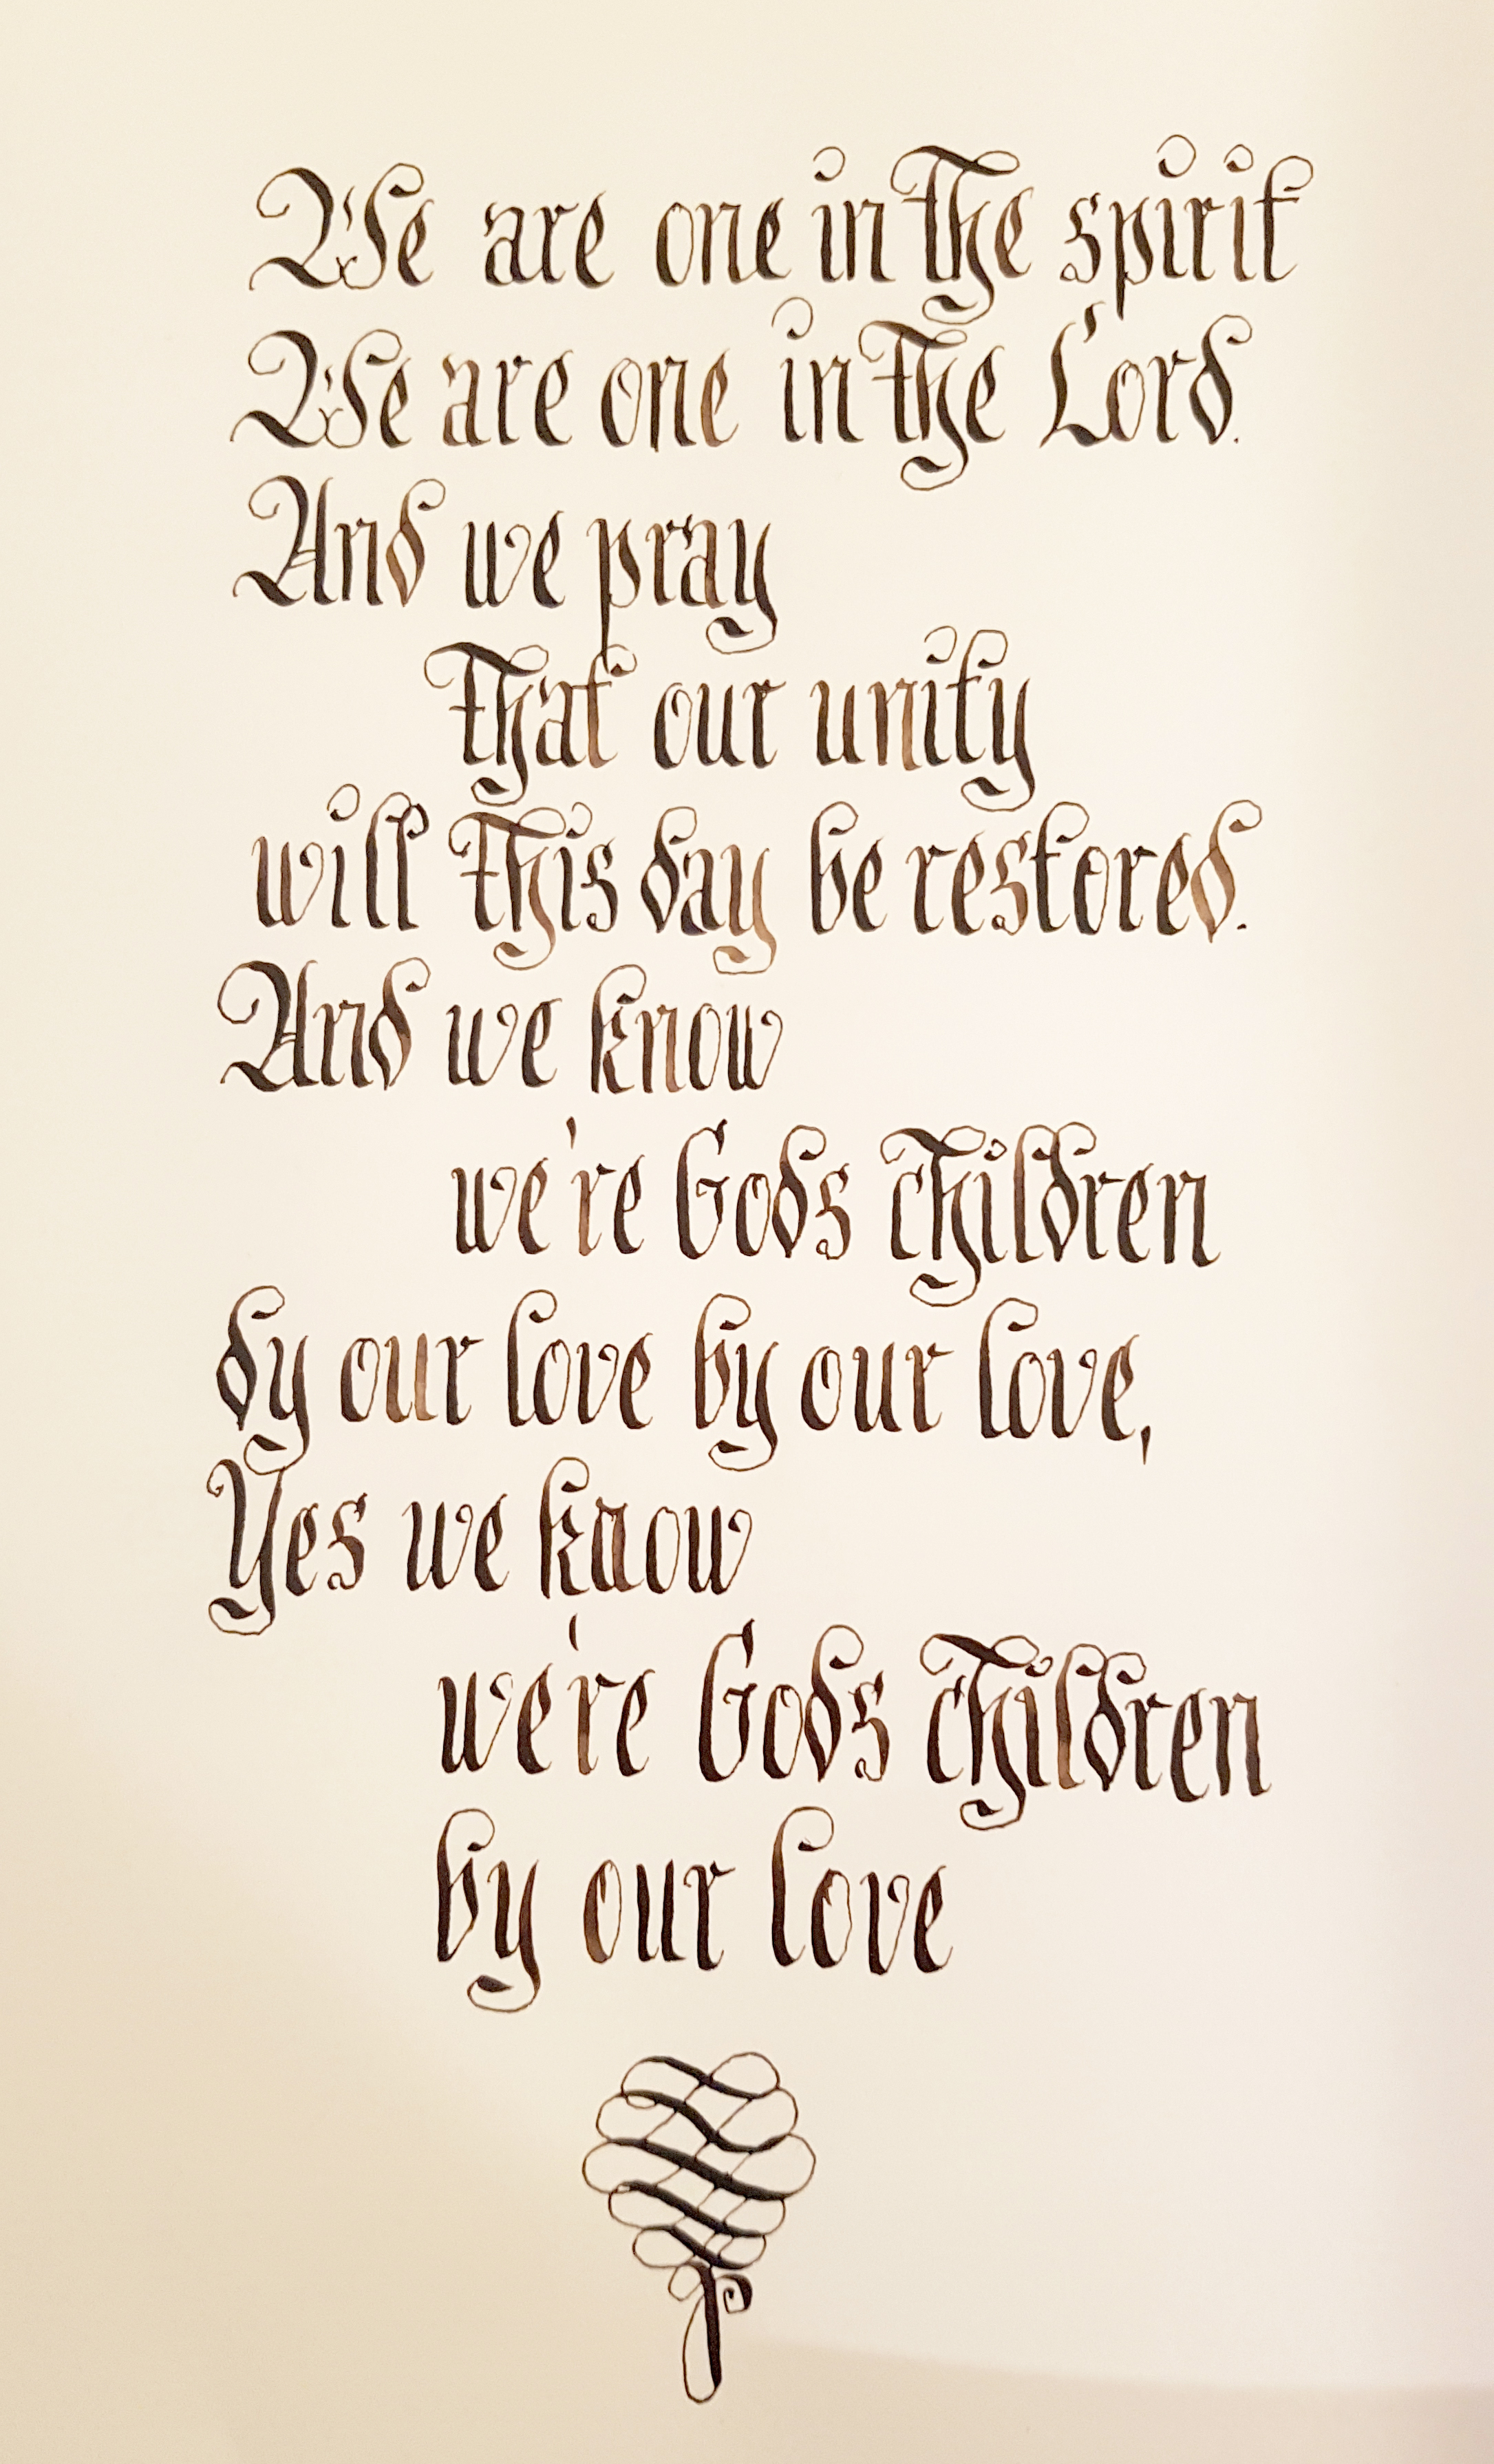 We are one in the spirit
We are one in the Lord.
And we pray
that our unity
will this day be restored.
And we know
we're Gods children
dy our love by our love,
Yes we know
we're Gods children
by our love